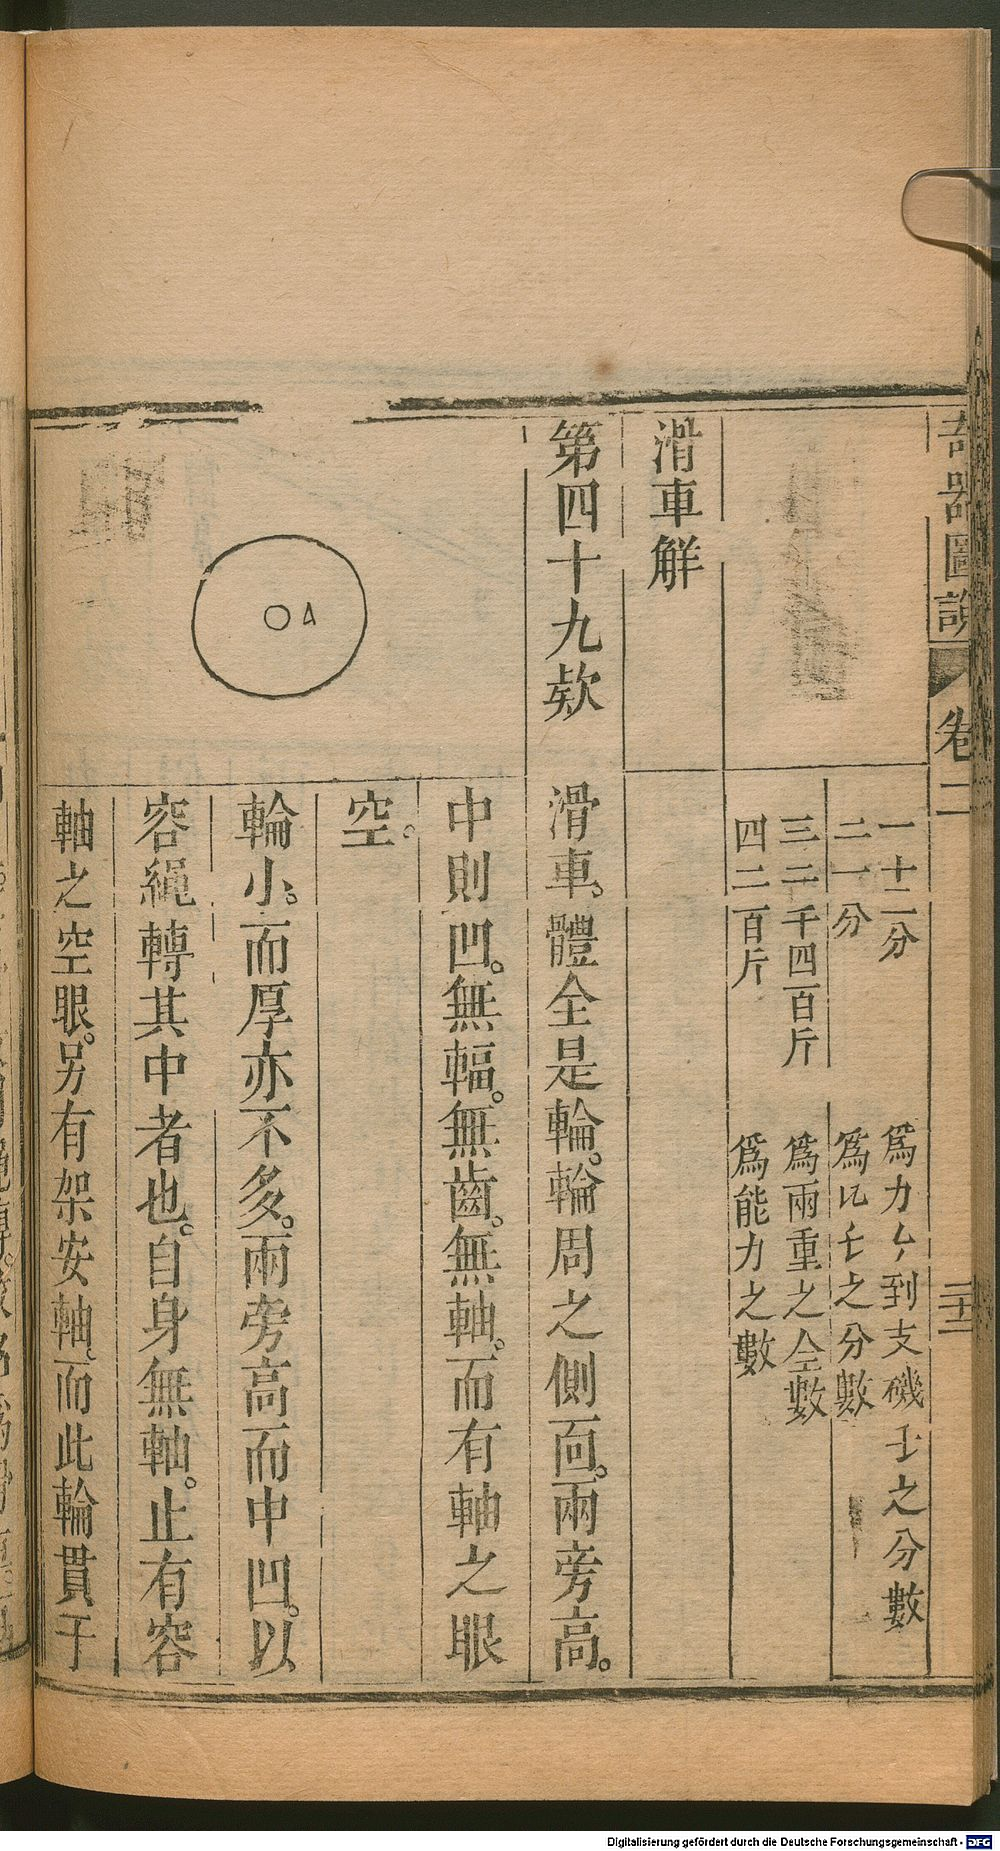 奇器圖說 卷二 二十二
一 十二分 爲力 到支磯 之分數
二 一分 爲 之分數
三 二千四百斤 爲兩重之全數
四 二百斤 爲能力之數
滑車解
第四十九款
滑車。體全是輪。輪周之側面。兩旁高。
中則凹。無輻。無齒。無軸。而有軸之眼
空。
輪小。而厚亦不多。兩旁高而中凹。以
容繩轉其中者也。自身無軸。止有容
軸之空眼。另有架安軸。而此輪貫于
A
Digitalisierung gefördert durch die Deutsche Forschungsgemeinschaft - DFG